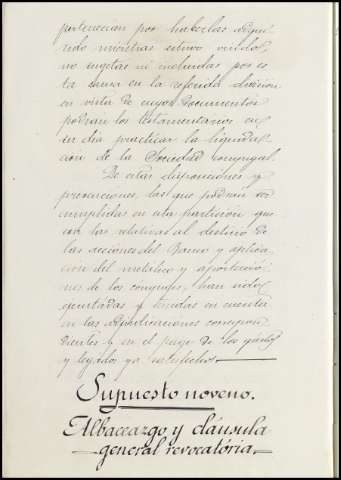 pertenecian por haberlas adqui-
rido mientras estuvo viudo,
no sugetas ni incluidas por es-
ta causa en la referida division
en vista de cuyos documentos
podran los testamentarios en
su dia practicar la liquida-
cion de la Sociedad conyugal.
De estas disposiciones y
prevenciones, las que podian ser
cumplidas en esta particion que
son las relativas al destino de
las acciones del Banco y aplica-
cion del metalico y aportacio-
nes de los conyuges, han sido
ejecutadas y tenidas en cuenta
en las adjudicaciones correspon-
dientes y en el pago de los gastos
y legados ya satisfechos.
Supuesto noveno.
Albaceazgo y cláusula
general revocatória.